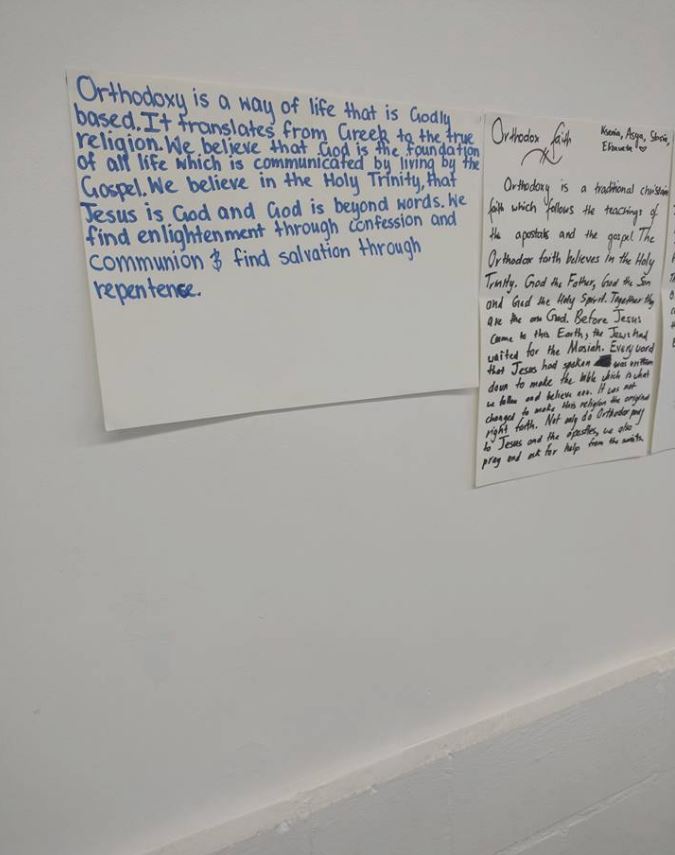 Orthodoxy is a way of life that is Godly
based. It translates from Greek to the true
religion. We believe that God is the foundation
of all life which is communicated by living by the
Gospel. We believe in the Holy Trinity, that
Jesus is God and God is beyond words. We
find enlightenment through confession and
communion & find salvation through
repentence.
Orthodox faith
Ksenia, Asya,
Orthodoxy is a traditional christian
faith which follows the teachings of
the apostals and the gospel The
Orthodox faith believes in the Holy
Trinity. God the Father, God the Son
and God the Holy Spirit. Together they
are the one God. Before Jesus
came to this Earth, the Jews had
waited for the Masiah. Every word
that Jesus had spoken was written
down to make the bible which is what
we follow and believe now. It was not
changed to make this religion the original
right faith. Not only do Orthodox pray
to Jesus and the apostles, we also
pray and ask for help from the saints.